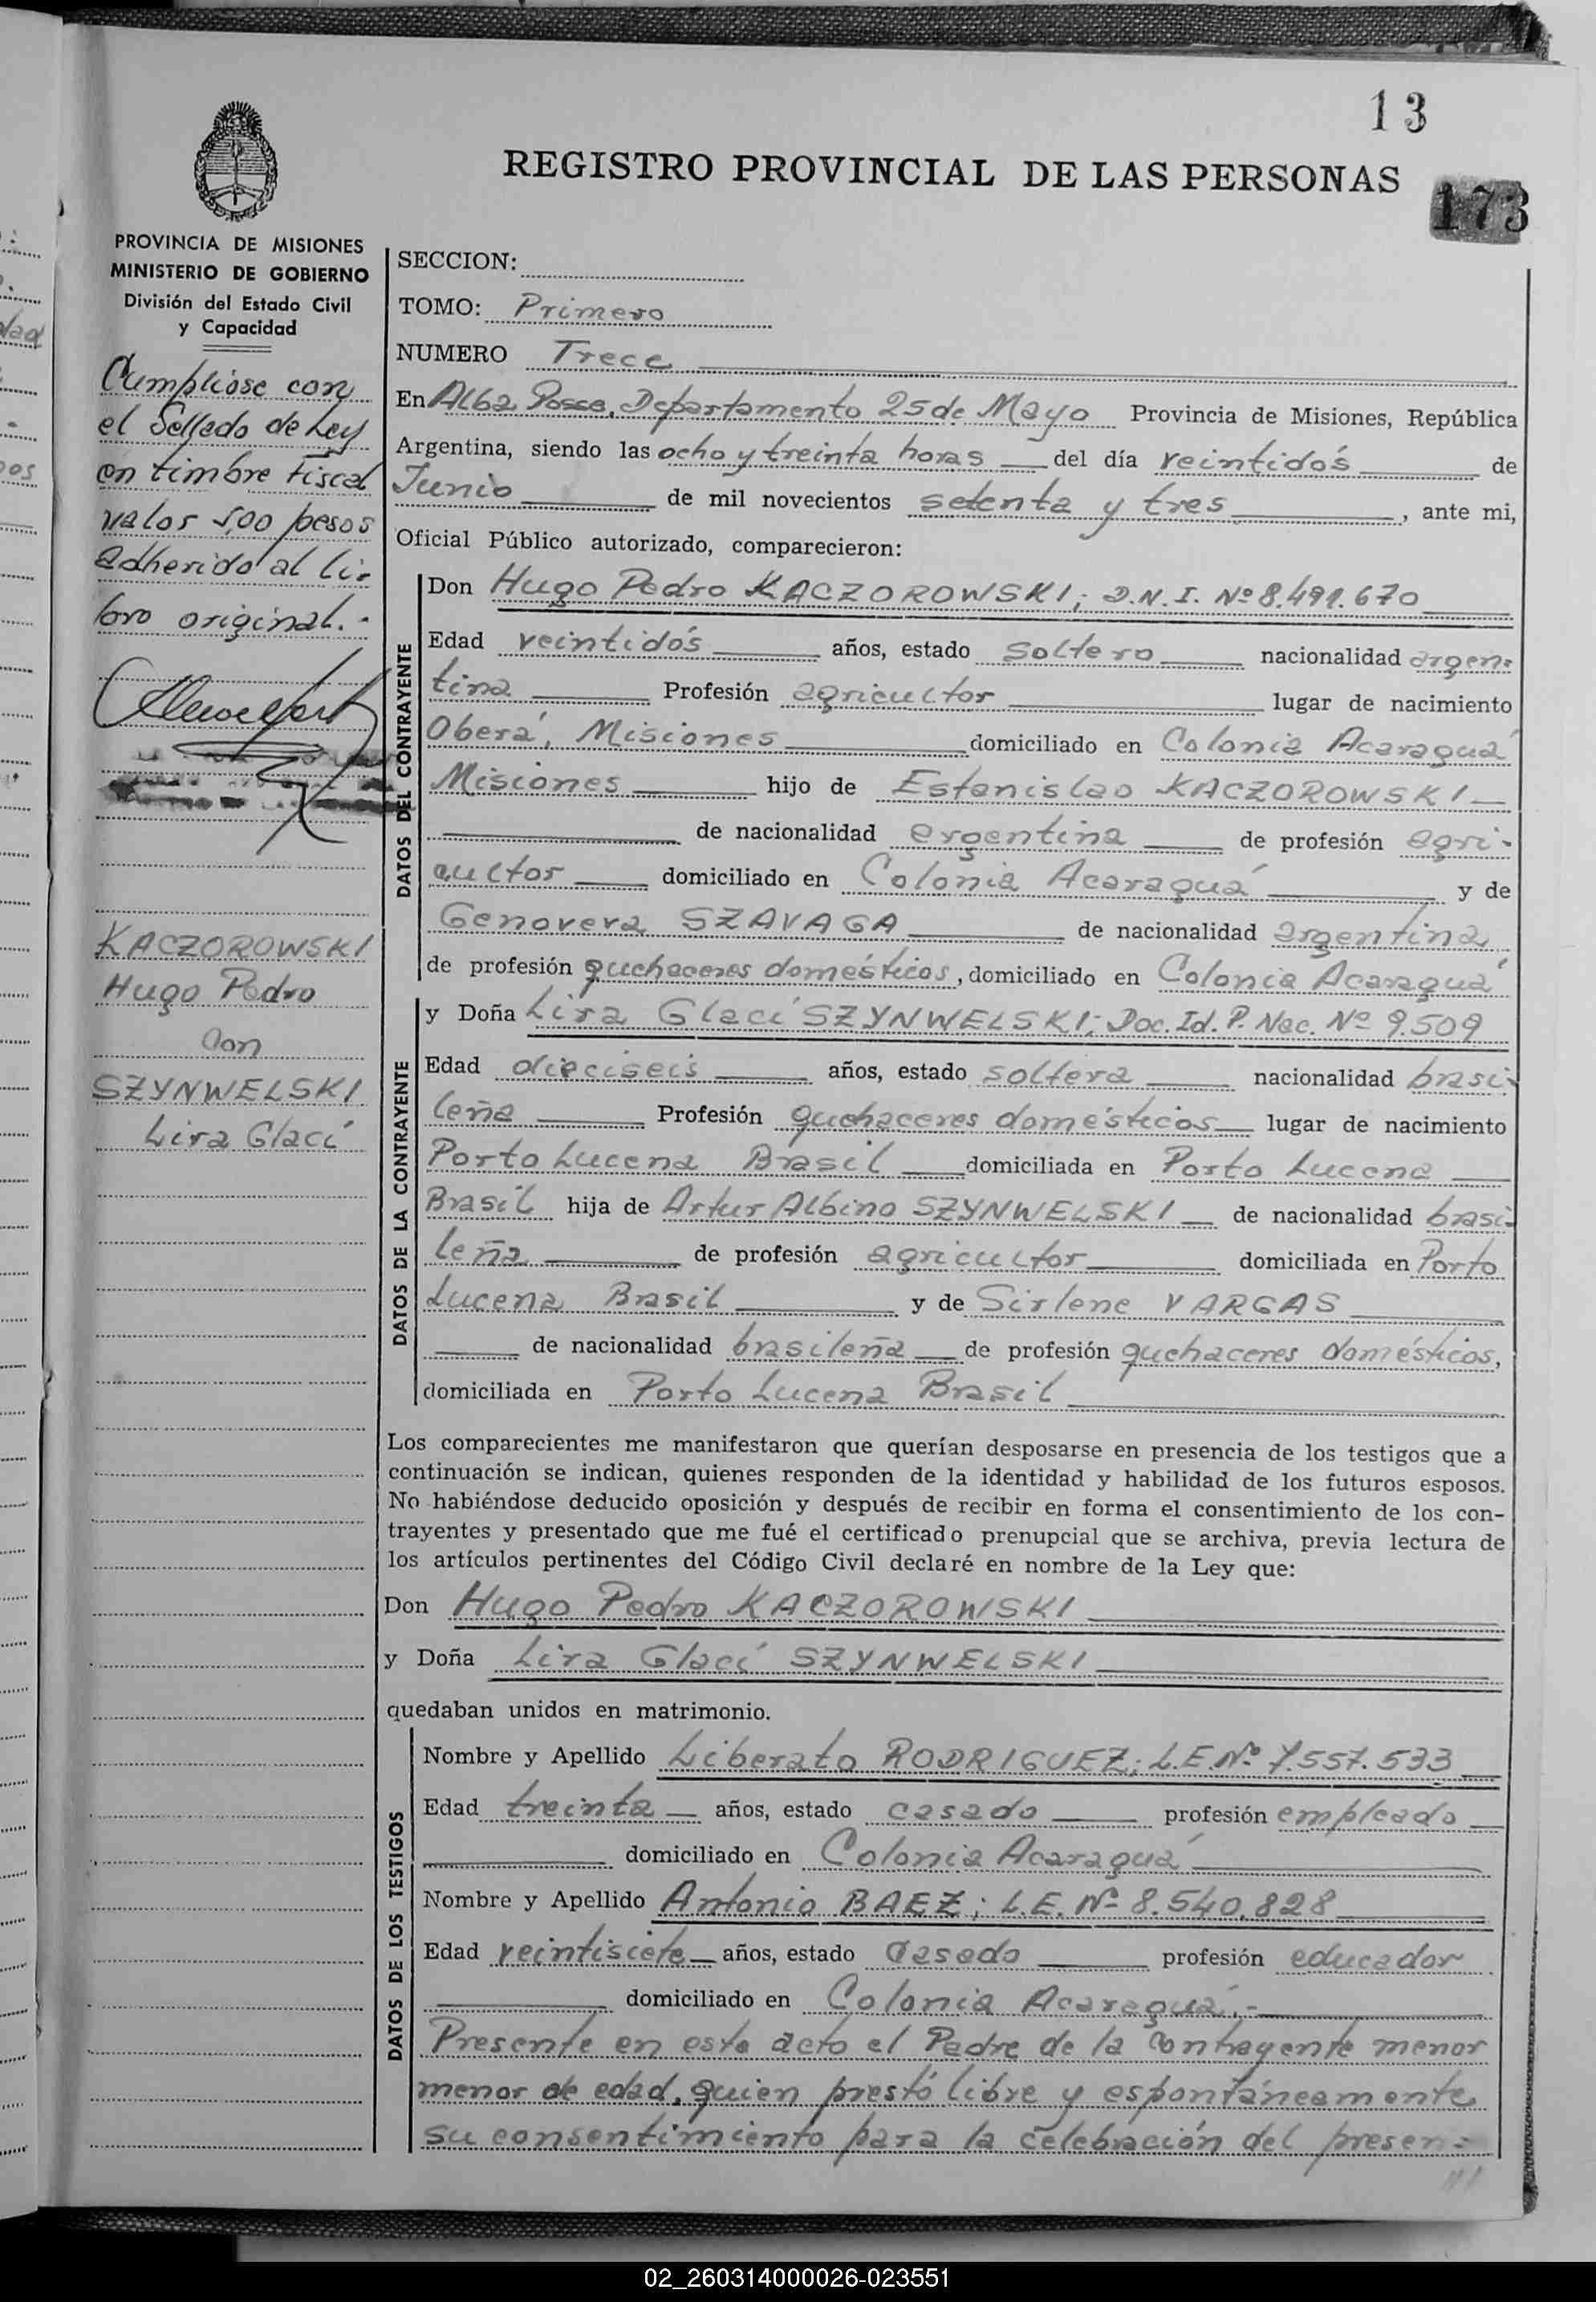 13
REGISTRO PROVINCIAL DE LAS PERSONAS
173
PROVINCIA DE MISIONES
MINISTERIO DE GOBIERNO
División del Estado Civil
y Capacidad
Cumplióse con
el Sellado de Ley
en timbre Fiscal
valor 5,00 pesos
adherido al li-
bro original.-
KACZOROWSKI
Hugo Pedro
con
SZYNWELSKI
Lira Glací
SECCION:
TOMO: Primero
NUMERO Trece
En Alba Posse, Departamento 25 de Mayo Provincia de Misiones, República
Argentina, siendo las ocho y treinta horas del día veintidós de
Junio de mil novecientos setenta y tres, ante mi,
Oficial Público autorizado, comparecieron:
DATOS DEL CONTRAYENTE
Don Hugo Pedro KACZOROWSKI; D.N.I. Nº 8.491.670
Edad veintidós años, estado soltero nacionalidad argen-
tina Profesión agricultor lugar de nacimiento
Oberá, Misiones domiciliado en Colonia Acaraguá
Misiones hijo de Estanislao KACZOROWSKI
de nacionalidad argentina de profesión agri-
cultor domiciliado en Colonia Acaraguá y de
Genoveva SZAVAGA de nacionalidad argentina
de profesión quehaceres domésticos, domiciliado en Colonia Acaraguá
DATOS DE LA CONTRAYENTE
y Doña Lira Glací SZYNWELSKI; Doc. Id. P. Nac. Nº 9.509
Edad dieciseis años, estado soltera nacionalidad brasi-
leña Profesión quehaceres domésticos lugar de nacimiento
Porto Lucena Brasil domiciliada en Porto Lucena
Brasil hija de Artur Albino SZYNWELSKI de nacionalidad brasi-
leña de profesión agricultor domiciliada en Porto
Lucena Brasil y de Sirlene VARGAS
de nacionalidad brasileña de profesión quehaceres domésticos,
domiciliada en Porto Lucena Brasil
Los comparecientes me manifestaron que querían desposarse en presencia de los testigos que a
continuación se indican, quienes responden de la identidad y habilidad de los futuros esposos.
No habiéndose deducido oposición y después de recibir en forma el consentimiento de los con-
trayentes y presentado que me fué el certificado prenupcial que se archiva, previa lectura de
los artículos pertinentes del Código Civil declaré en nombre de la Ley que:
Don Hugo Pedro KACZOROWSKI
y Doña Lira Glací SZYNWELSKI
quedaban unidos en matrimonio.
DATOS DE LOS TESTIGOS
Nombre y Apellido Liberato RODRIGUEZ; L.E. Nº 7.557.533
Edad treinta años, estado casado profesión empleado
domiciliado en Colonia Acaraguá
Nombre y Apellido Antonio BAEZ; L.E. Nº 8.540.828
Edad veintisiete años, estado casado profesión educador
domiciliado en Colonia Acaraguá.-
Presente en este acto el Padre de la contrayente menor
menor de edad, quien prestó libre y espontáneamente
su consentimiento para la celebración del presen-
02_260314000026-023551